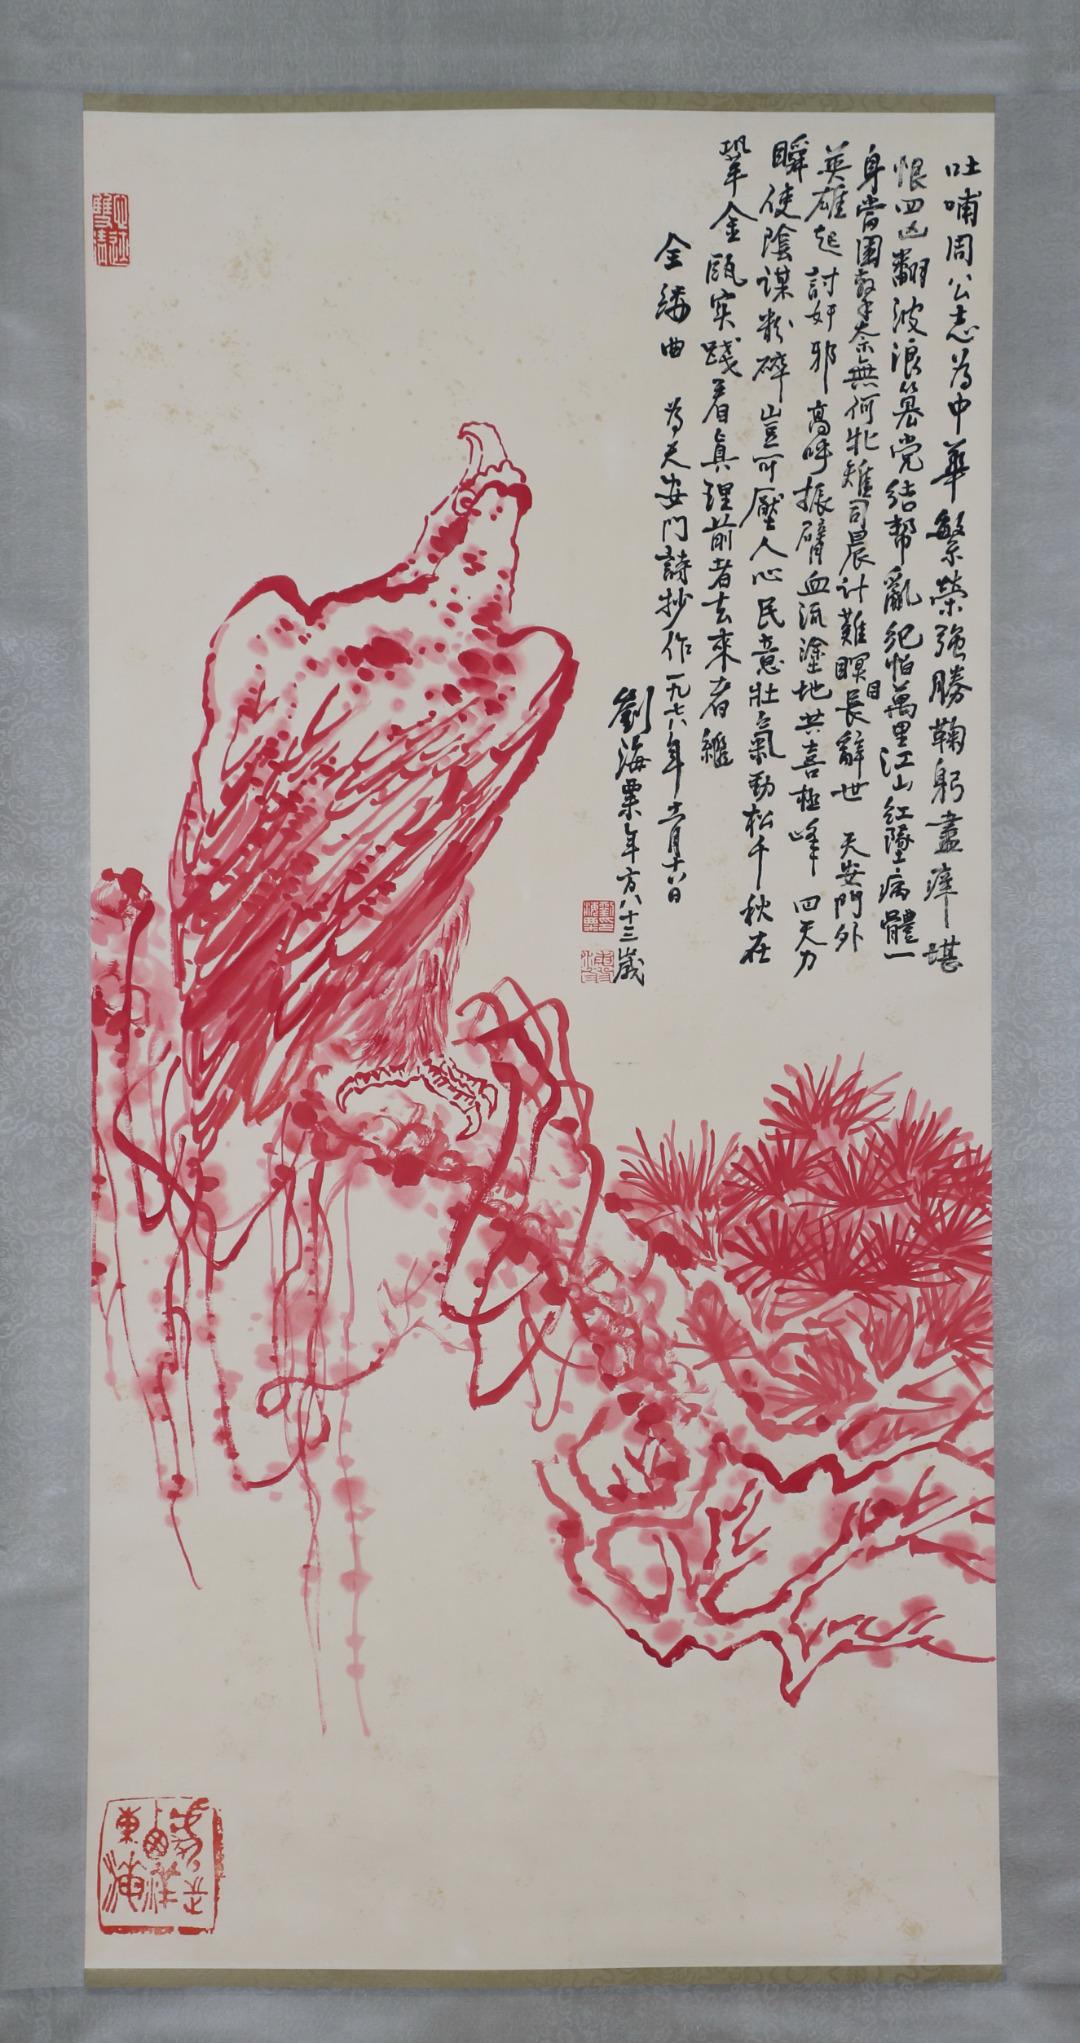 吐哺周公志為中華繁榮強勝鞠躬盡瘁堪
恨四凶翻波浪篡党结帮亂纪怕萬里江山紅墜病體一
身當國奈無何牝雉司晨计難瞑目長辭世 天安門外
英雄起討奸邪高呼振臂血流塗地共喜極峰回天力
瞬使陰謀粉碎豈可壓人心民意壯氣勁松千秋在
鞏金甌实踐着真理前者去來者繼
金缕曲 為天安門詩抄作一九七八年十一月十六日
劉海粟年方八十三歲
劉海粟